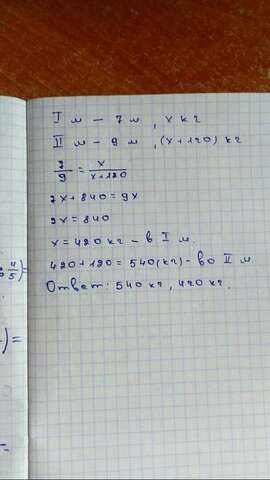 I м — 7 м , х кг
II м — 9 м , (х+120) кг
7/9 = х/х+120
7х+840=9х
2х=840
х=420 кг - в I м.
420+120=540(кг)- во II м.
Ответ: 540 кг, 420 кг.
4/5)=
)=